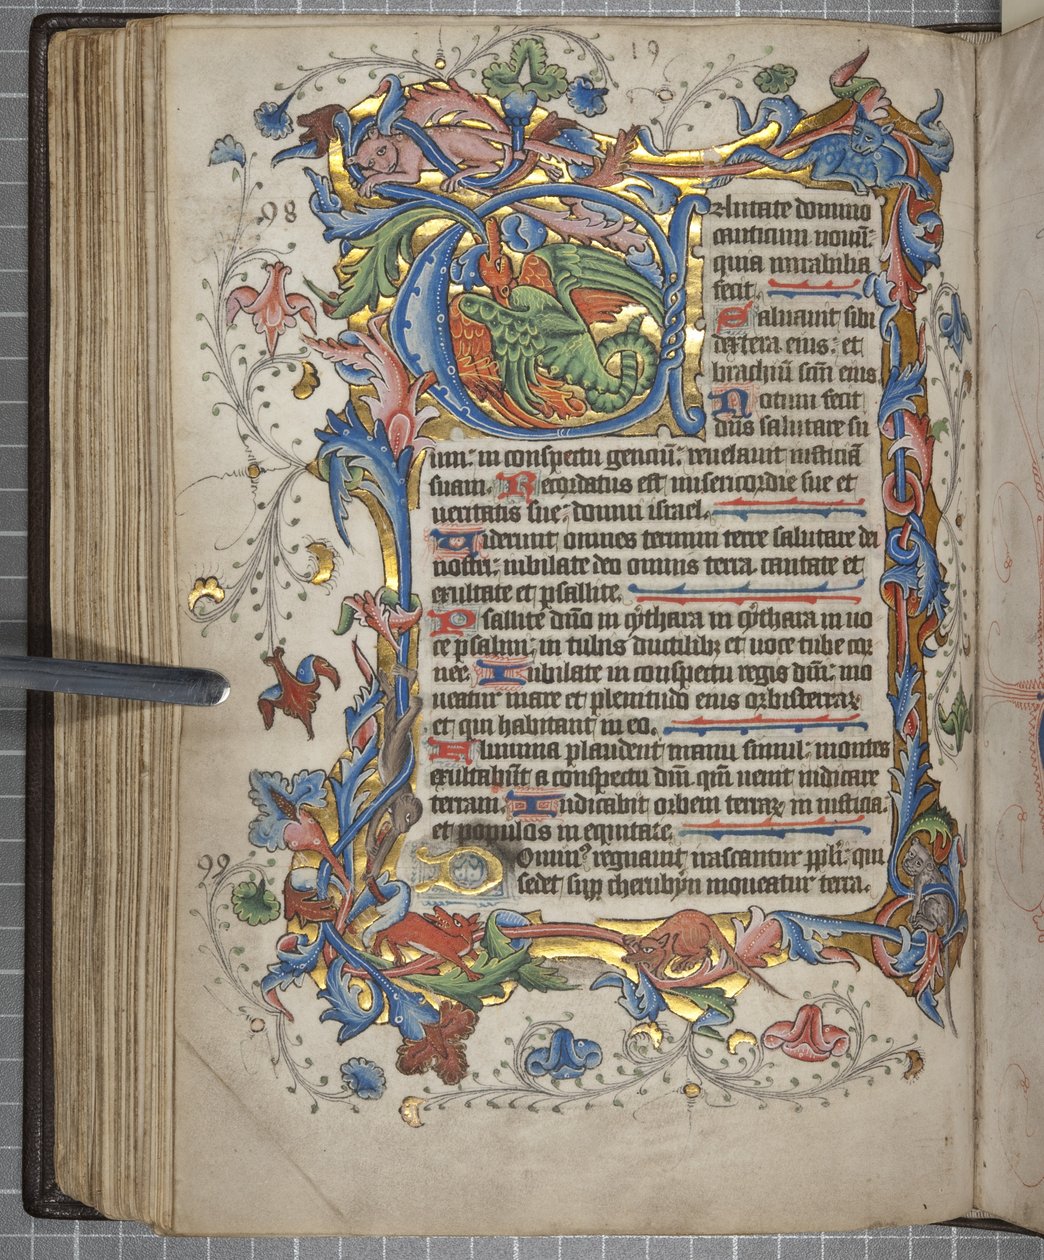 19
98
Cantate domino
canticum nouū:
quia mirabilia
fecit.
Saluauit sibi
dextera eius: et
brachiū scm̄ eius.
Notum fecit
dn̄s salutare su
um: in conspectu genciū: reuelauit iusticiā
suam. Recordatus est misericordie sue et
ueritatis sue: domui israel.
Uiderunt omnes termini terre salutare dei
nostri: iubilate deo omnis terra, cantate et
exultate et psallite.
Psallite dn̄o in cythara in cythara et uo
ce psalmi: in tubis ductilibꝫ et uoce tube cor
nee. Iubilate in conspectu regis dn̄i: mo
ueatur mare et plenitudo eius orbisterraꝝ
et qui habitant in eo.
Flumina plaudent manu simul: montes
exultabūt a conspectu dn̄i. qm̄ uenit iudicare
terram. Iudicabit orbem terraꝝ in iusticia:
et populos in equitate.
99
Dominꝰ regnauit, irascantur pp̄li: qui
sedet sup̱ cherubyn moueatur terra.